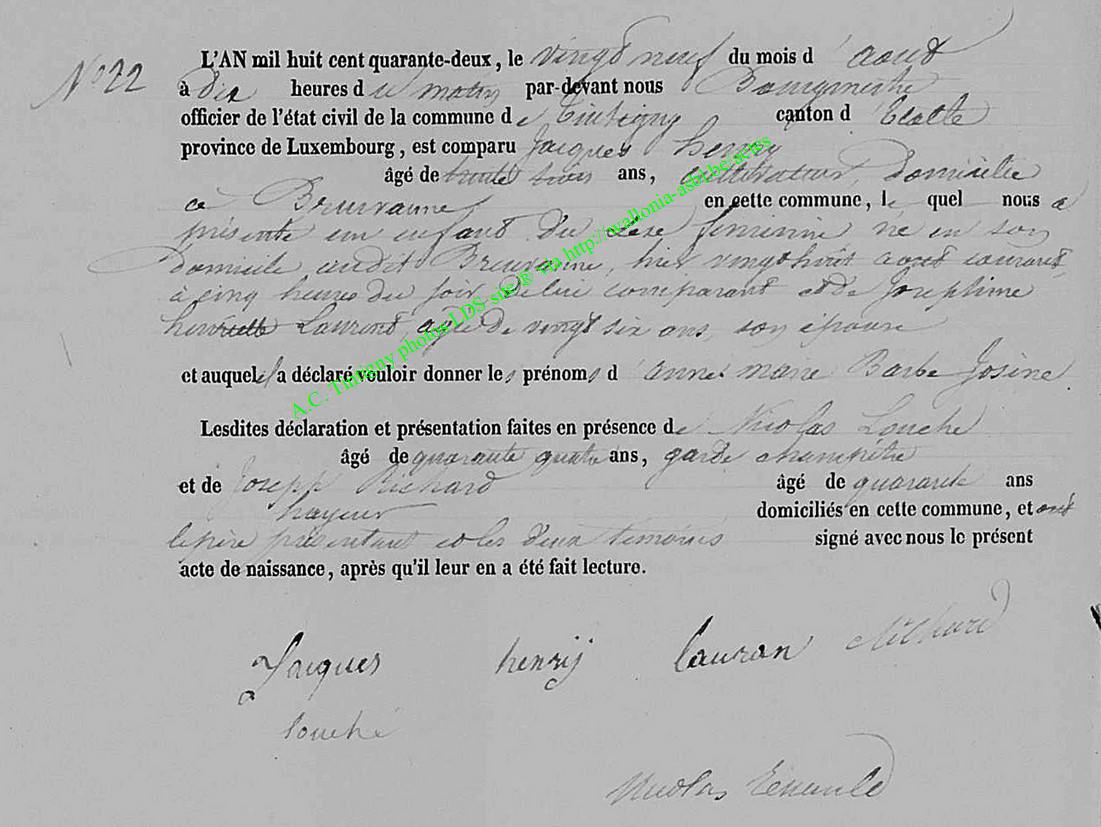 N° 22
L'AN mil huit cent quarante-deux, le vingt neuf du mois d'aout
à dix heures du matin par-devant nous Bourgmestre
officier de l'état civil de la commune de Tintigny canton d'Etalle
province de Luxembourg, est comparu Jacques henry
âgé de trente trois ans, cultivateur, Domicilié
a Breuvanne en cette commune, le quel nous a
présenté un enfant du sexe feminin né en son
Domicile, audit Breuvanne, hier vingt huit aout courant,
à cinq heures du soir, de lui comparant et de Josephine
Laurent, agée de vingt six ans, son épouse
et auquel il a déclaré vouloir donner les prénoms d'anne marie Barbe Josine
Lesdites déclaration et présentation faites en présence de Nicolas Louche
âgé de quarante quatre ans, garde champêtre
et de Joseph Richard âgé de quarante ans
domiciliés en cette commune, et ont
le père présentant et les deux témoins signé avec nous le présent
acte de naissance, après qu'il leur en a été fait lecture.
Jacques henrij lauran Richard
louché
Nicolas
A.C. Tintigny photos LDS-site via http://wallonia-asbl.be/actes